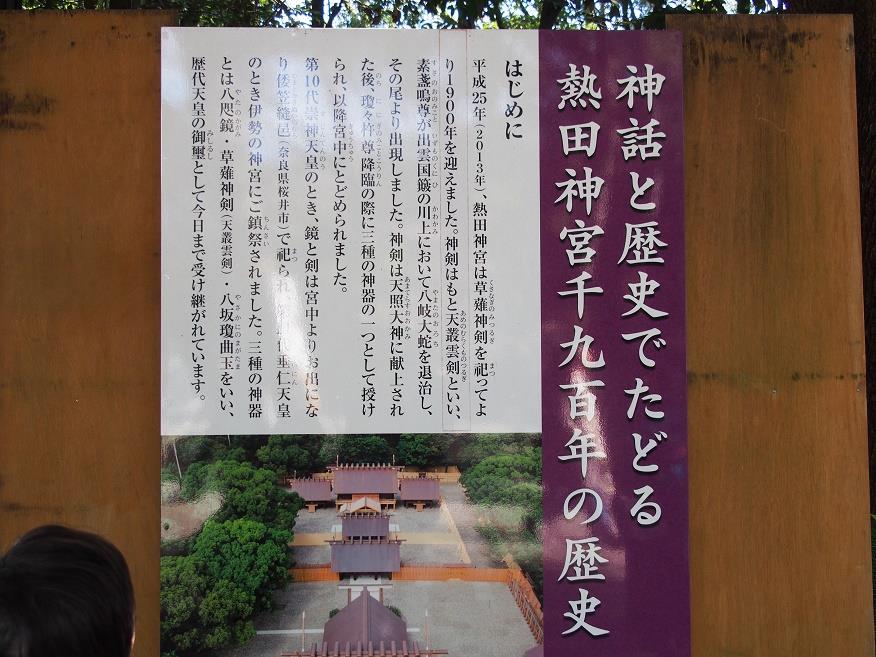 神話と歴史でたどる
熱田神宮千九百年の歴史
はじめに
平成25年（2013年）、熱田神宮は草薙神剣を祀ってよ
り1900年を迎えました。神剣はもと天叢雲剣といい、
素盞嗚尊が出雲国簸の川上において八岐大蛇を退治し、
その尾より出現しました。神剣は天照大神に献上され
た後、瓊々杵尊降臨の際に三種の神器の一つとして授け
られ、以降宮中にとどめられました。
第10代崇神天皇のとき、鏡と剣は宮中よりお出にな
り倭笠縫邑（奈良県桜井市）で祀られ、垂仁天皇
のとき伊勢の神宮にご鎮祭されました。三種の神器
とは八咫鏡・草薙神剣（天叢雲剣）・八坂瓊曲玉をいい、
歴代天皇の御璽として今日まで受け継がれています。